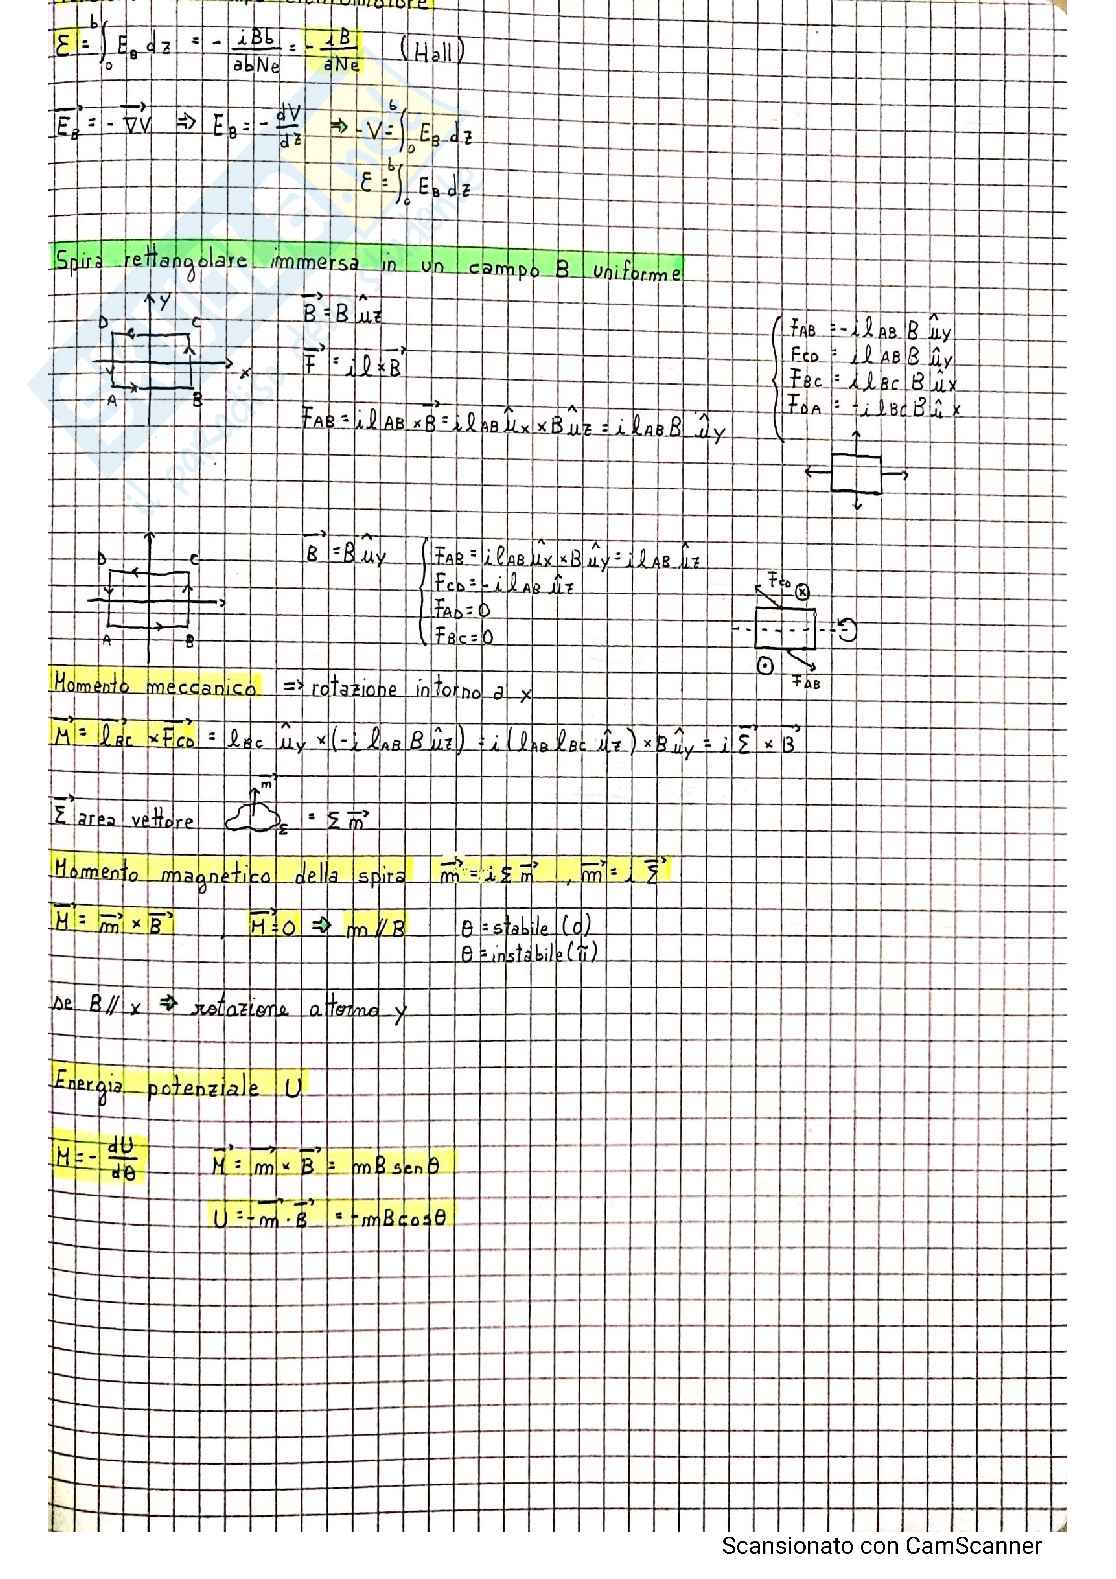 ε = ∫₀ᵇ E_B dz = - iBb/abNe = - iB/aNe (Hall)
E_B⃗ = - ∇⃗V ⇒ E_B = - dV/dz ⇒ -V = ∫₀ᵇ E_B dz
ε = ∫₀ᵇ E_B dz
Spira rettangolare immersa in un campo B uniforme
y
D C
x
A B
B⃗ = B ûz
F⃗ = i l × B⃗
F_AB = i l_AB × B⃗ = i l_AB ûx × B ûz = i l_AB B ûy
F_AB = - i l_AB B ûy
F_CD = i l_AB B ûy
F_BC = i l_BC B ûx
F_DA = - i l_BC B ûx
D C
A B
B⃗ = B ûy
F_AB = i l_AB ûx × B ûy = i l_AB ûz
F_CD = - i l_AB ûz
F_AD = 0
F_BC = 0
F_CD
F_AB
Momento meccanico ⇒ rotazione intorno a x
M⃗ = l_BC⃗ × F_CD⃗ = l_BC ûy × (- i l_AB B ûz) = i (l_AB l_BC ûz) × B ûy = i Σ⃗ × B⃗
m⃗
Σ⃗ area vettore Σ = Σ m⃗
Momento magnetico della spira m⃗ = i Σ m⃗ , m⃗ = i Σ⃗
M⃗ = m⃗ × B⃗ , M⃗ = 0 ⇒ m // B θ = stabile (0)
θ = instabile (π)
se B // x ⇒ rotazione attorno y
Energia potenziale U
M = - dU/dθ M⃗ = m⃗ × B⃗ = mB senθ
U = - m⃗ · B⃗ = - mB cosθ
Scansionato con CamScanner